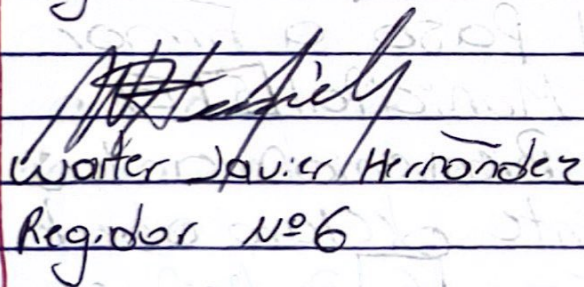 Walter Javier Hernández
Regidor Nº 6